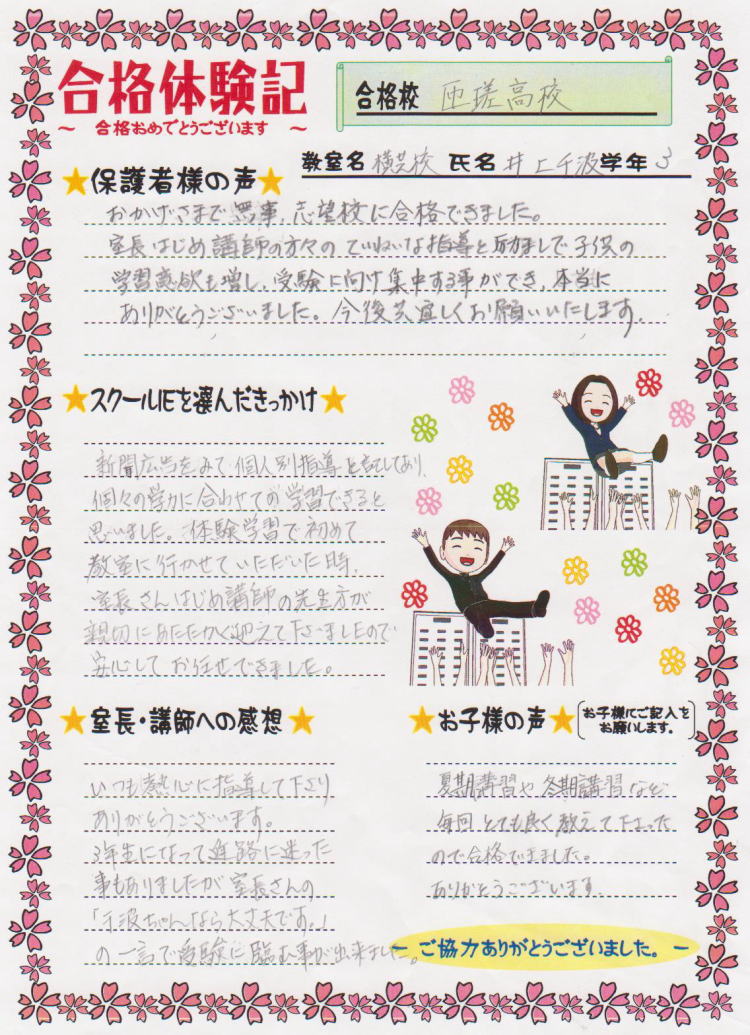 合格体験記
～ 合格おめでとうございます ～
合格校 匝瑳高校
教室名 横芝校 氏名 井上千波 学年 3
★保護者様の声★
おかげさまで無事、志望校に合格できました。
室長はじめ講師の方々のていねいな指導と励ましで子供の
学習意欲も増し、受験に向け集中する事ができ、本当に
ありがとうございました。今後共宜しくお願いいたします。
★スクールIEを選んだきっかけ★
新聞広告をみて個人別指導と書てしてあり、
個々の学力に合わせての学習できると
思いました。体験学習で初めて
教室に行かせていただいた時、
室長さんはじめ講師の先生方が
親切にあたたかく迎えて下さいましたので
安心してお任せできました。
★室長・講師への感想★
いつも熱心に指導して下さり
ありがとうございます。
3年生になって進路に迷った
事もありましたが室長さんの
「千波ちゃんなら大丈夫です。」
の一言で受験に臨む事が出来ました。
★お子様の声★
お子様にご記入を
お願いします。
夏期講習や冬期講習など
毎回とても良く教えて下さった
ので合格できました。
ありがとうございます。
－ ご協力ありがとうございました。 －